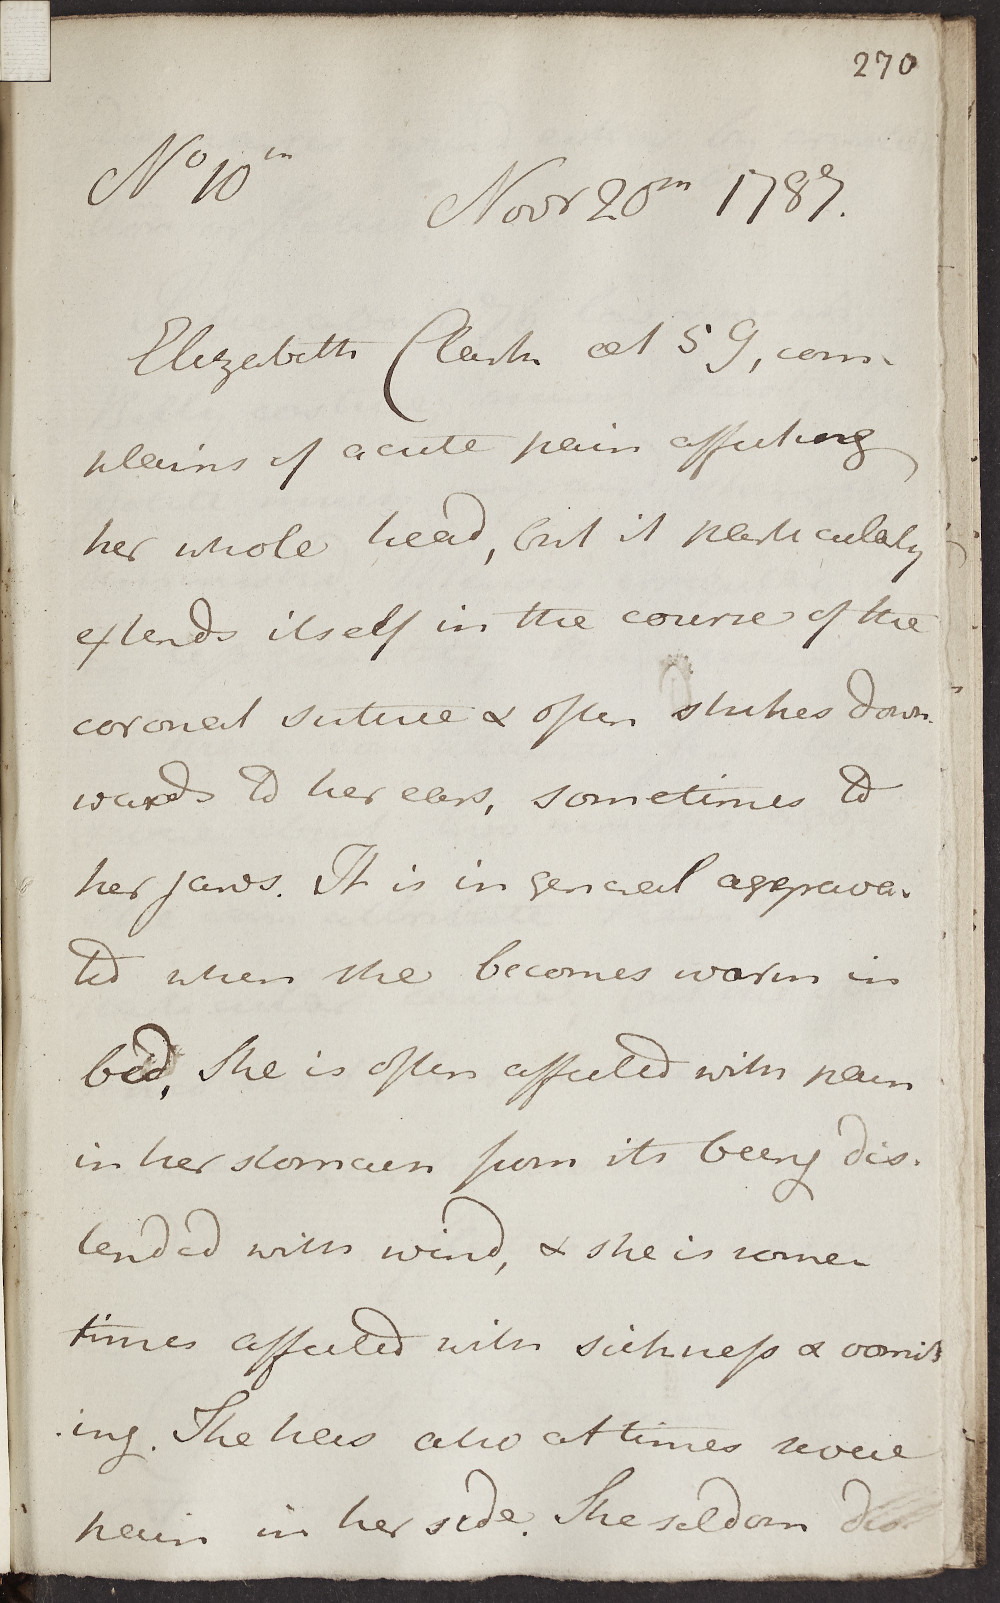 270
No 10th
Novr 20th 1787.
Elizabeth Clark æt 59, com-
plains of acute pain affecting
her whole head, but it particularly
extends itself in the course of the
coronal suture & often strikes down-
wards to her ears, sometimes to
her jaws. It is in general aggrava-
ted when she becomes warm in
bed, She is often affected with pain
in her stomach from its being dis-
tended with wind, & she is some-
times affected with sickness & vomit-
-ing. She has also at times severe
pain in her side. She seldom dis-